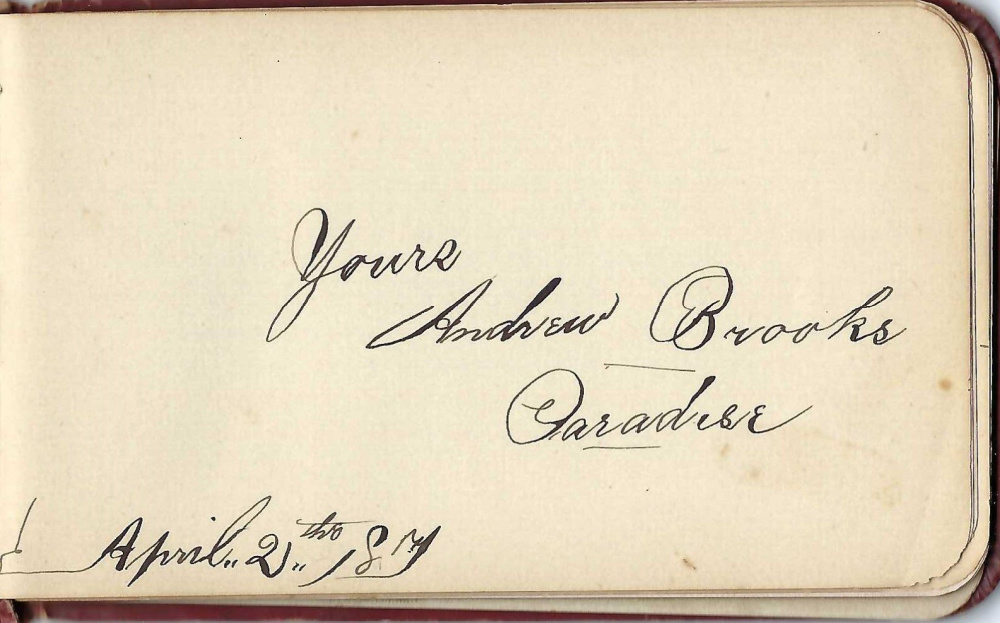 Yours
Andrew Brooks
Paradise
April 2th